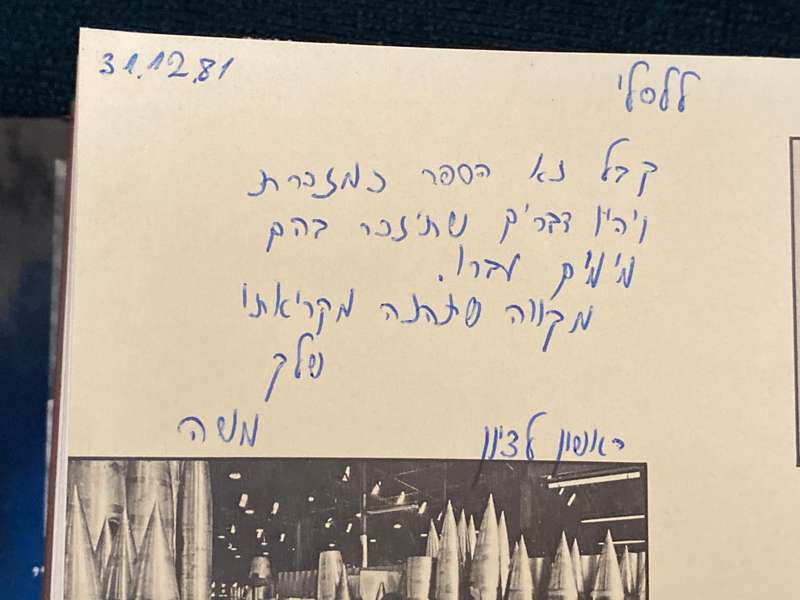 31.12.81
ללסלי
קבל נא הספר כמזכרת
ויהיו דברים שתיזכר בהם
מימים עברו.
מקווה שתהנה מקריאתו
שלך
משה
ראשון לציון